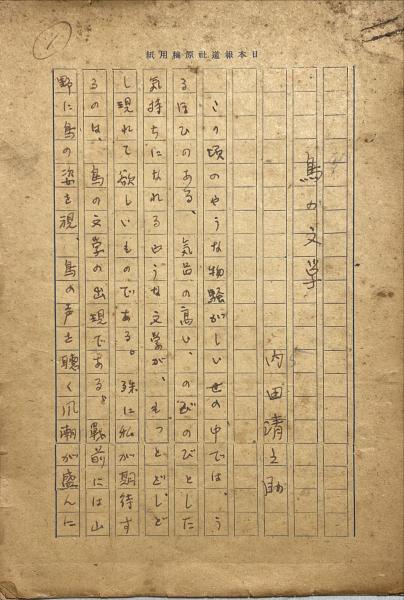 日本報道社原稿用紙
鳥の文学
内田清之助
この頃のやうな物騒がしい世の中では、う
るほひのある、気品の高い、のびのびとした
気持ちになれるやうな文学が、もっとどしど
し現れて欲しいものである。殊に私が期待す
るのは、鳥の文学の出現である。戦前には山
野に鳥の姿を視、鳥の声を聴く風潮が盛んに